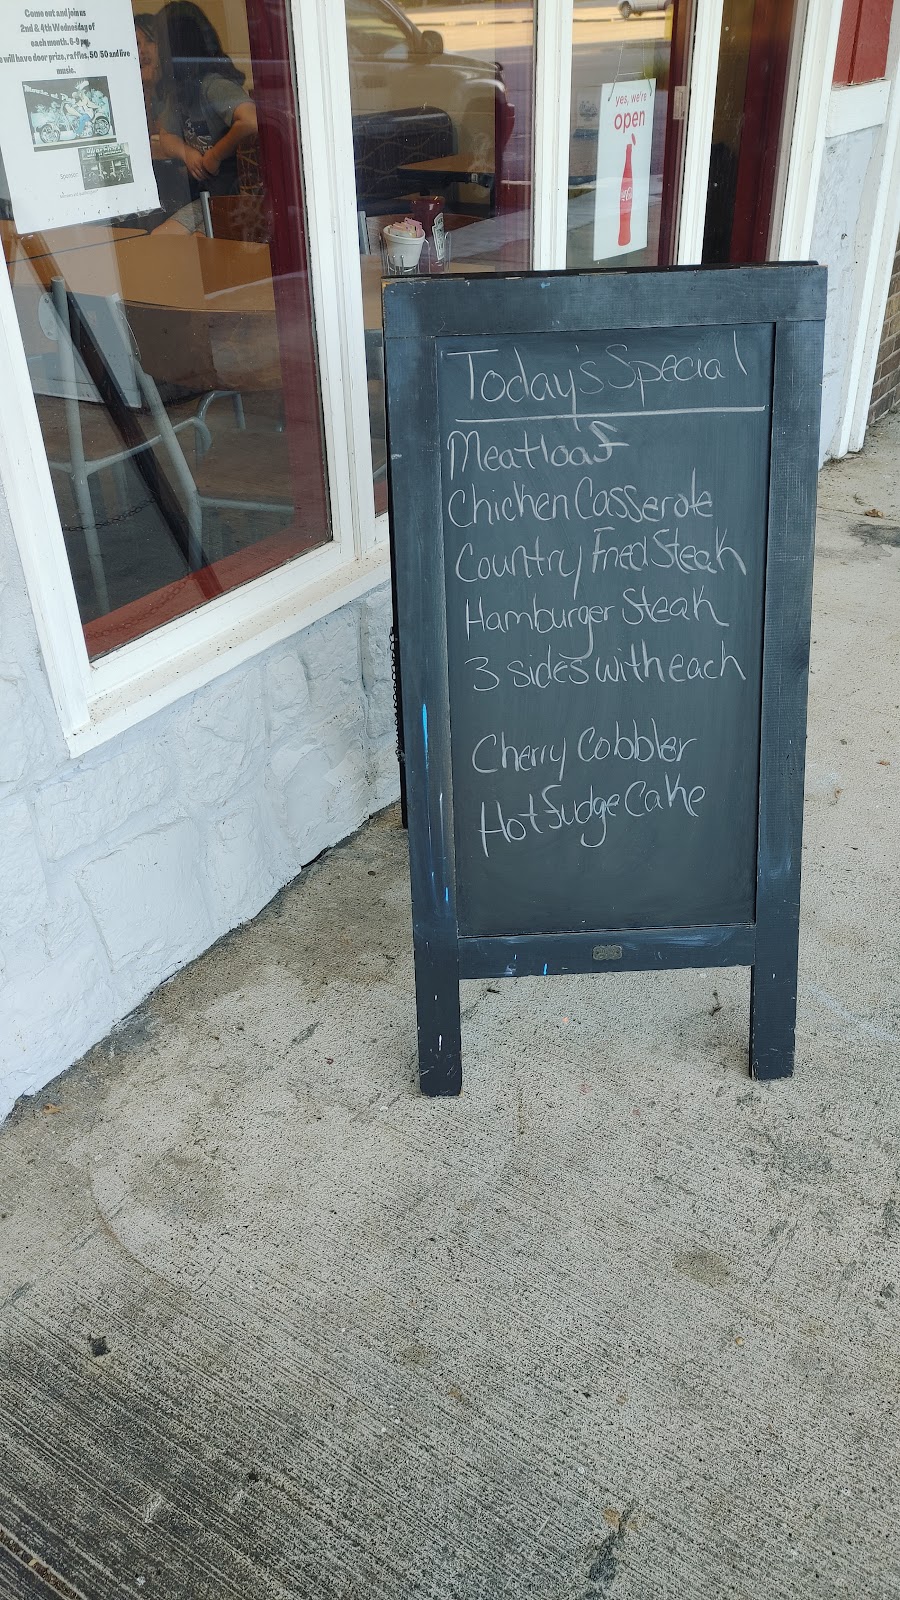 Come out and join us
2nd & 4th Wednesday of
each month. 6-9 pm.
will have door prize, raffles, 50/50 and live
music.
Sponsor
yes, we're
open
Today's Special
Meatloaf
Chicken Casserole
Country Fried Steak
Hamburger Steak
3 sides with each
Cherry Cobbler
Hot fudge Cake